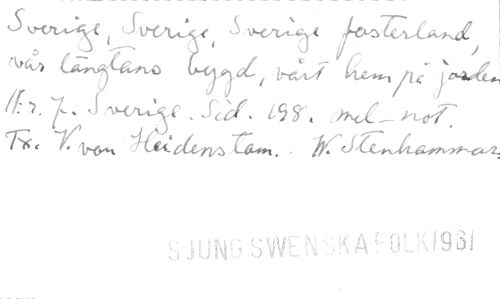 Sverige, Sverige, Sverige fosterland,
vår längtans bygd, vårt hem på jorden
N:r. 7. Sverige. Sid. 198. mel-not.
Tx. V. von Heidenstam. W. Stenhammar.
SJUNG SWENSKA FOLK 1961